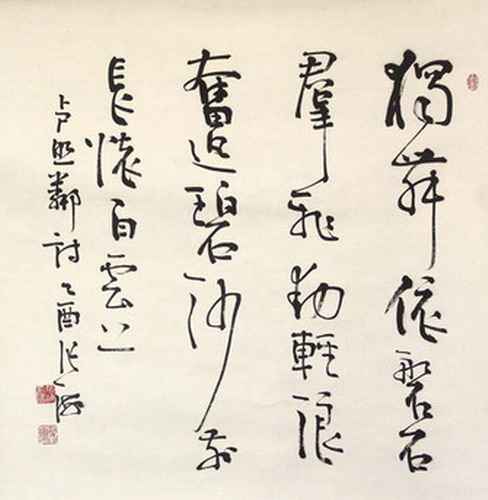 獨舞依磐石
羣飛動輕浪
奮迅碧沙前
長懷白雲上
卢照鄰詩乙酉張海